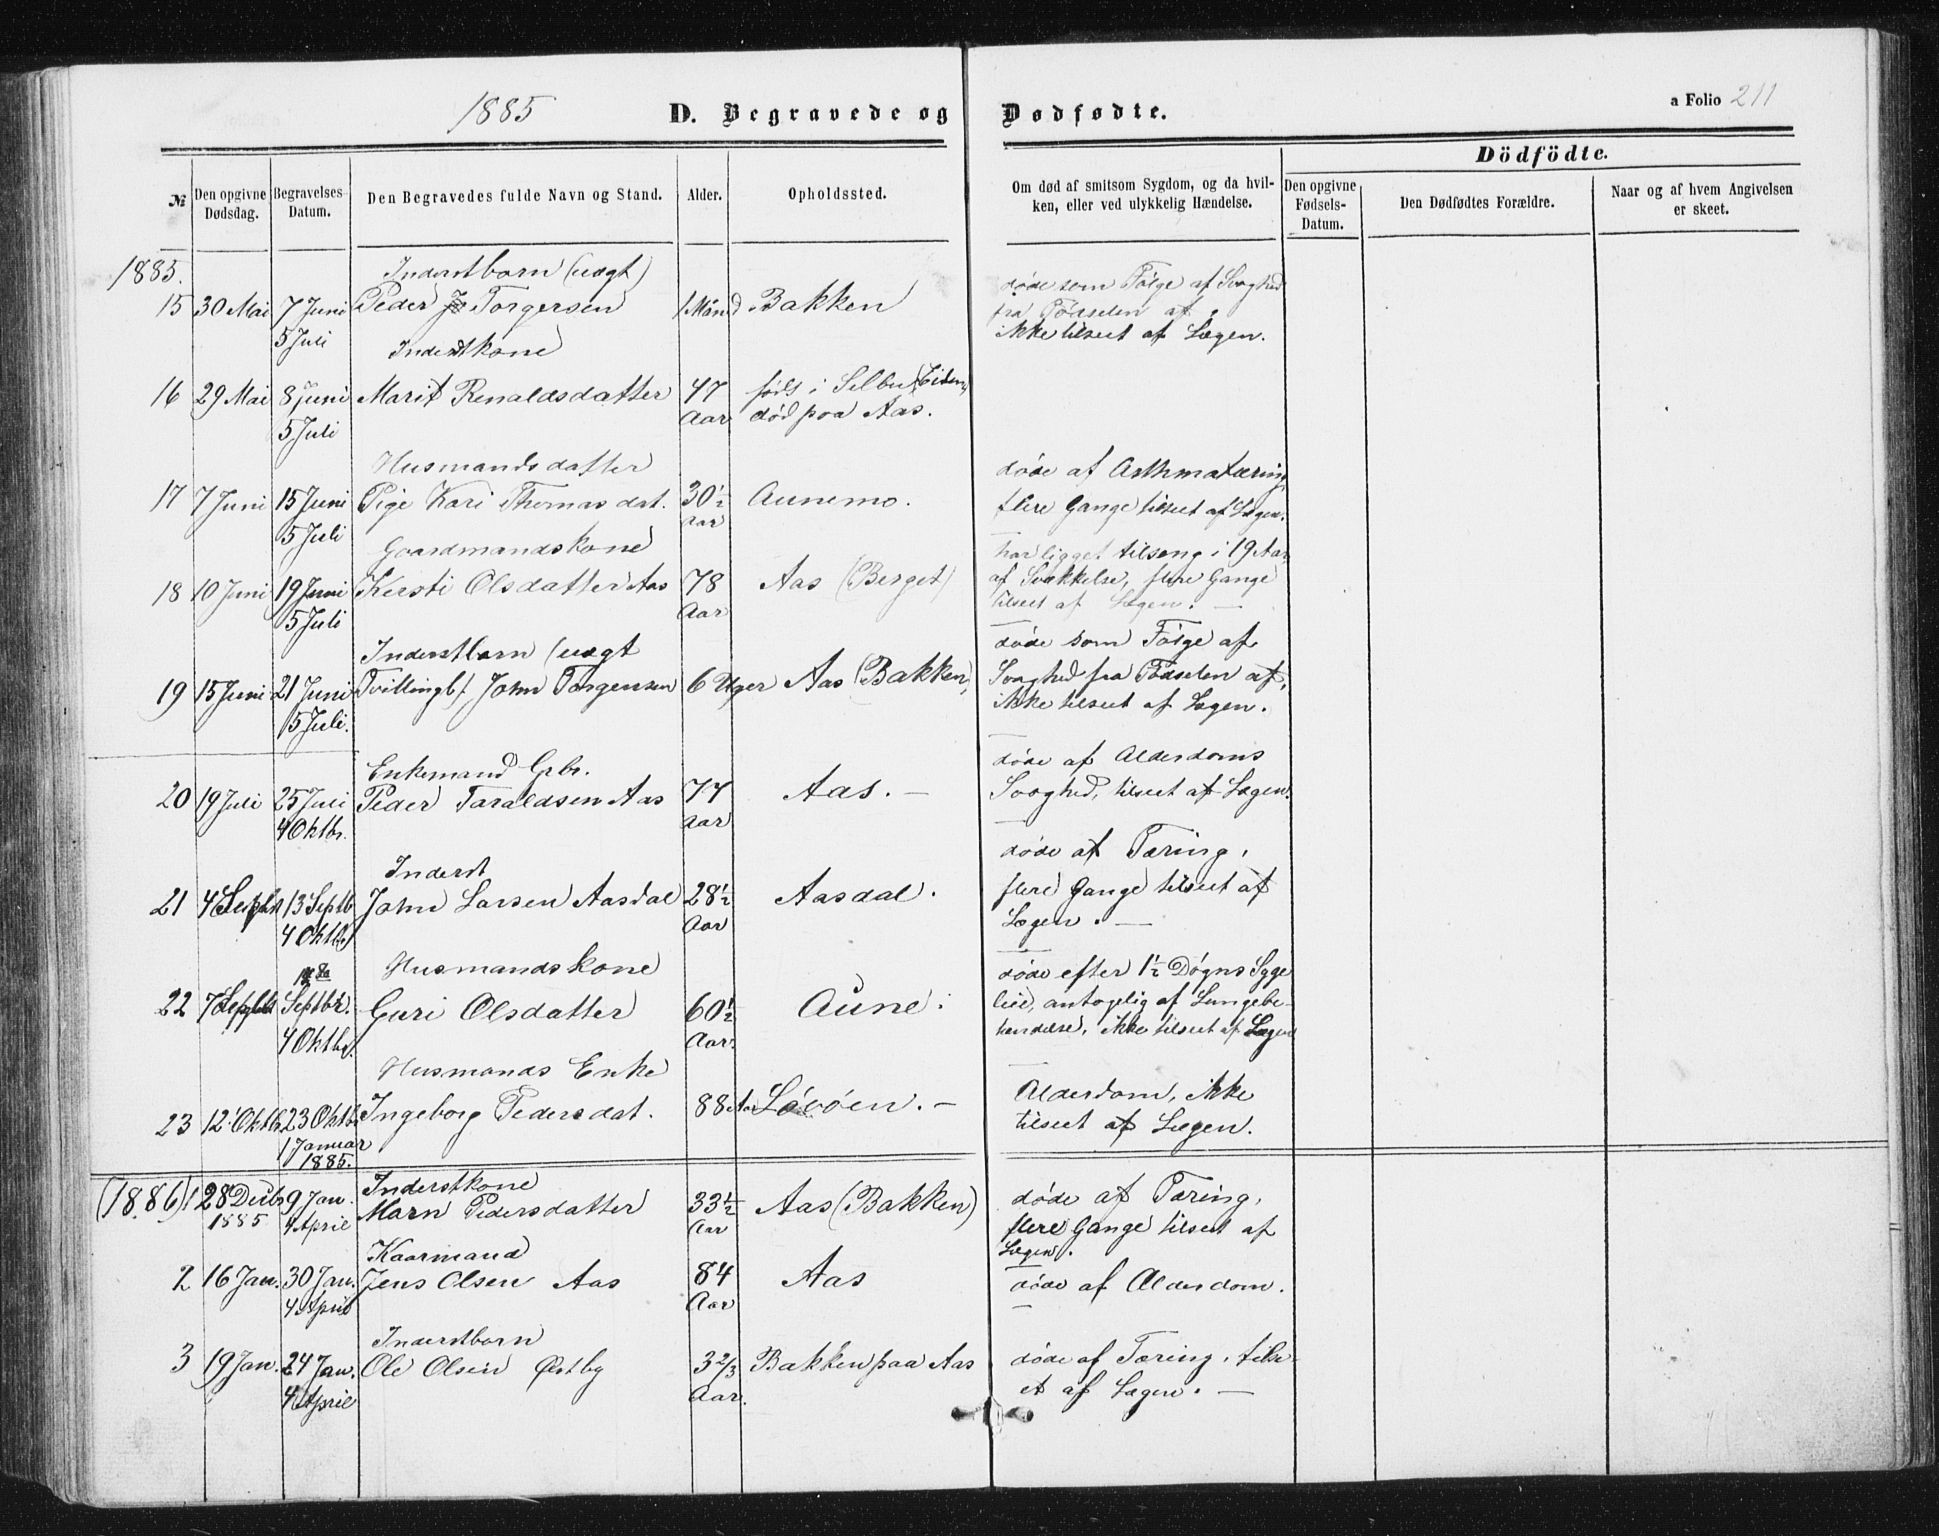 1885 D. Begravede og Dødfødte. a Folio 211
Dödfödte.
№ Den opgivne Dødsdag. Begravelses-Datum. Den Begravedes fulde Navn og Stand. Alder. Opholdssted. Om død af smitsom Sygdom, og da hvilken, eller ved ulykkelig Hændelse. Den opgivne Fødsels-Datum. Den Dødfødtes Forældre. Naar og af hvem Angivelsen er skeet.
1885. Inderstbarn (uægt) døde som Følge af Svaghed
15 30 Mai 7 Juni Peder Torgersen 1 Måned Bakken fra Fødselen af,
5 Juli ikke tilseet af Lægen.
Inderstkone
16 29 Mai 8 Juni Marit Renaldsdatter 47 født i Selbu (Eidem)
5 Juli Aar død paa Aas.
Husmandsdatter døde af Asthmatæring,
17 7 Juni 15 Juni Pige Kari Thomasdat. 30½ Aunemo. flere Gange tilseet af Lægen.
5 Juli Aar
Gaardmandskone har ligget tilseng i 19 Aar
18 10 Juni 19 Juni Kirsti Olsdatter Aas 78 Aas (Berget) af Svækkelse, flere Gange
5 Juli Aar tilseet af Lægen. —
Inderstbarn (uægt døde som Følge af
19 15 Juni 21 Juni Tvillingb/ John Torgersen 6 Uger Aas (Bakken) Svaghed fra Fødselen af,
5 Juli. ikke tilseet af Lægen.
Enkemand Gbr. døde af Alderdoms
20 19 Juli 25 Juli Peder Taraldsen Aas 77 Aas. — Svaghed, tilseet af Lægen.
4 Oktbr. Aar
Inderst døde af Tæring,
21 4 Septbr 13 Septb John Larsen Aasdal 28½ Aasdal. flere Gange tilseet af
4 Oktb Aar Lægen. —
Husmandskone døde efter 1½ Døgns Syge
22 7 Septbr Septbr. Guri Olsdatter 60½ Aune. leie, antagelig af Lungebe-
4 Oktbr. Aar. tændelse, ikke tilseet af Lægen
Husmands Enke
23 12 Oktb 23 Oktb Ingeborg Pedersdat. 88 Aar Løvøen. — Alderdom, ikke
1 Januar tilseet af Lægen.
1885.
(1886) 1 28 Decbr 9 Jan. Inderstkone 33½ Aas (Bakken) døde af Tæring,
1885 4 April Marn Pedersdatter Aar flere Gange tilseet af
Lægen.
Kaarmand
2 16 Jan. 30 Jan. Jens Olsen Aas 84 Aas døde af Alderdom.
4 April Aar
Inderstbarn
3 19 Jan. 24 Jan. Ole Olsen Østby 3⅔ Bakken paa Aas døde af Tæring, tilse-
4 April Aar. et af Lægen. —